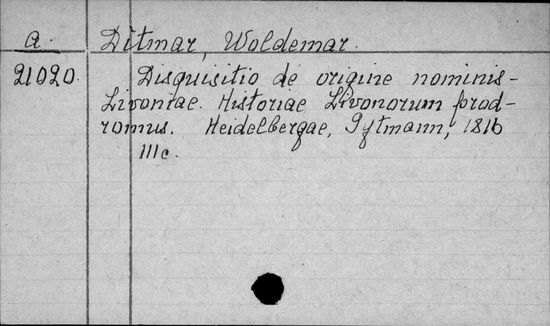 a. Ditmar, Woldemar.
21020. Disquisitio de origine nominis-
Livoniae. Historiae Livonorum prod-
romus. Heidelbergae, Gutmann, 1816
IIIc.